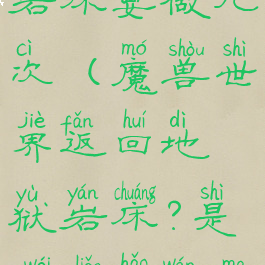 岩床要做几
cì mó shòu shì
次(魔兽世
jiè fǎn huí dì
界返回地
yù yán chuáng shì
狱岩床?是
wéi liǎo hǎo wán ma